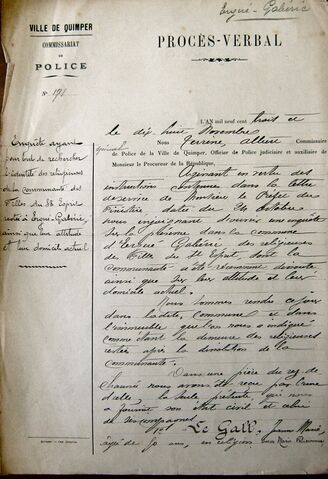 Ergué-Gabéric
VILLE DE QUIMPER
COMMISSARIAT
DE
POLICE
N° 178
PROCÈS-VERBAL
Enquête ayant
pour but de rechercher
l'identité des religieuses
de la Communauté des
Filles du St Esprit
restées à Ergué-Gabéric
ainsi que leur attitude
et leur domicile actuel
L'AN mil neuf cent trois et
le dix huit Novembre
Nous Albert Commissaire
de Police de la Ville de Quimper, Officier de Police judiciaire et auxiliaire de
Monsieur le Procureur de la République,
Agissant en vertu des
instructions contenues dans la lettre
de service de Monsieur le Préfet du
Finistère datée du 30 Octobre
nous d'ouvrir une enquête
sur la présence dans la commune
d'Ergué Gabéric des religieuses
des Filles du St Esprit, dont la
communauté a été récemment dissoute
ainsi que sur leur attitude et leur
domicile actuel.
Nous sommes rendu ce jour
dans ladite commune et dans
l'immeuble que l'on nous a indiqué
comme étant la demeure des religieuses
restées après la dissolution de la
communauté.
Dans une pièce du rez de
chaussée nous avons été reçu par l'une
d'elles, la seule présente, qui nous
a fourni son état civil et celui
de ses compagnes.
1° Le Gall, Jeanne Marie,
âgée de 50 ans, en religion Sœur Marie